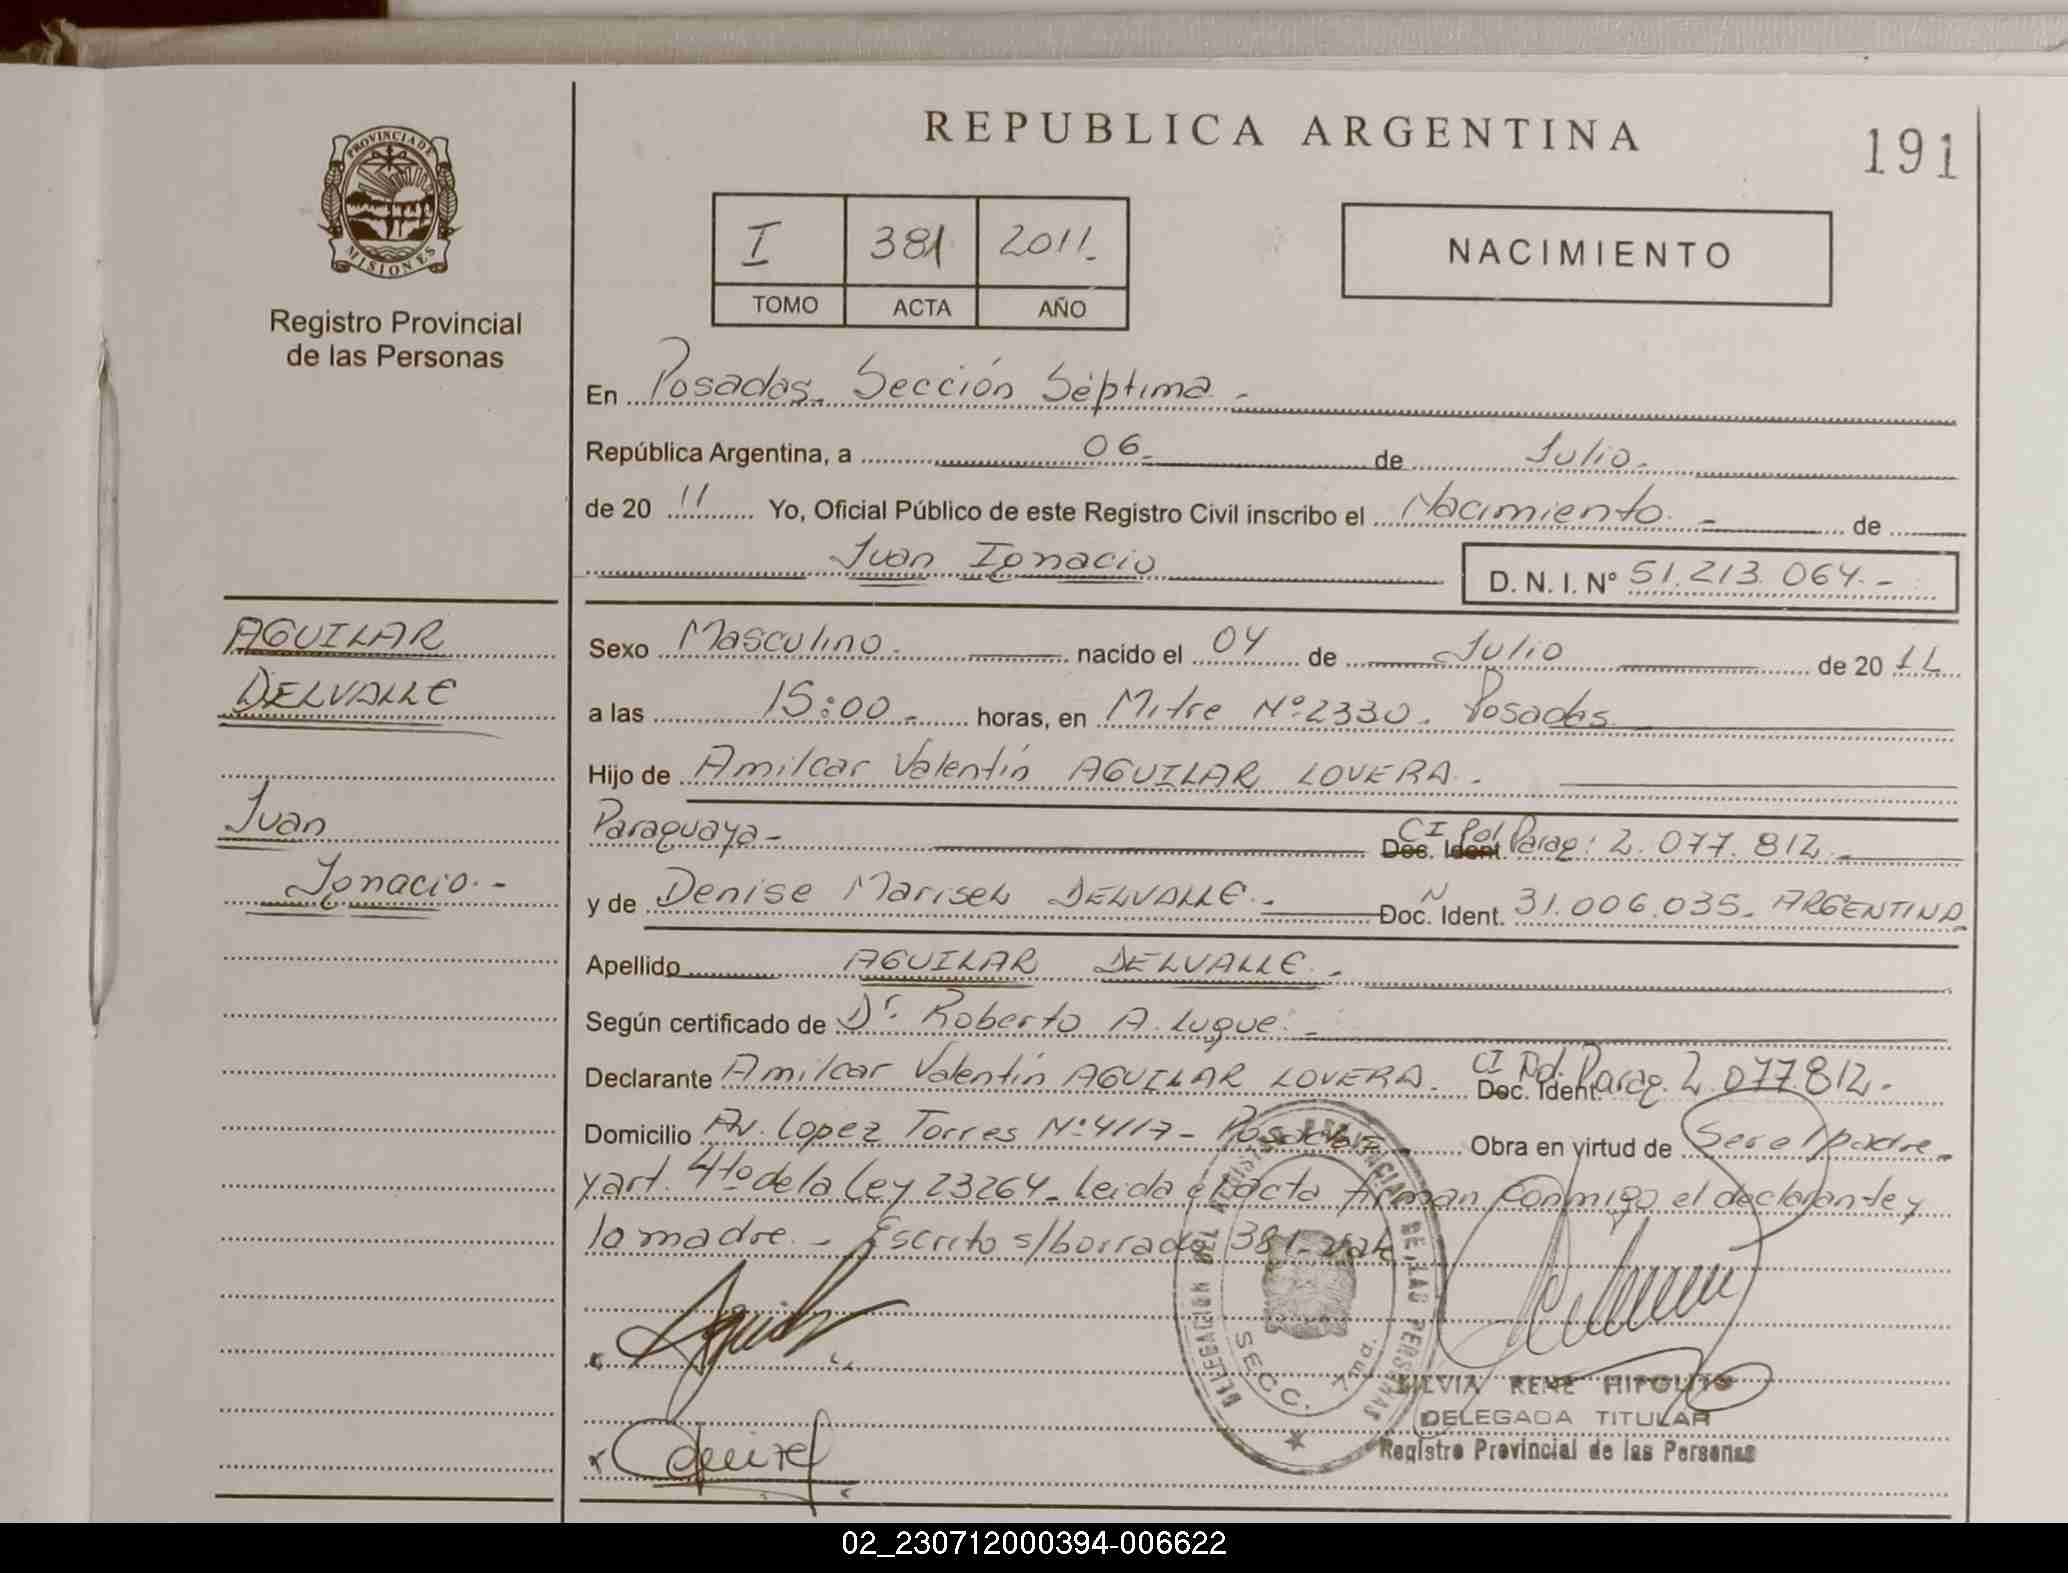 REPUBLICA ARGENTINA
191
PROVINCIA DE
MISIONES
Registro Provincial
de las Personas
I 381 2011.-
TOMO ACTA AÑO
NACIMIENTO
En Posadas. Sección Séptima.-
República Argentina, a 06. de Julio.
de 20 11 Yo, Oficial Público de este Registro Civil inscribo el Nacimiento.- de
Juan Ignacio
D. N. I. Nº 51.213.064.-
AGUILAR
DELVALLE
Juan
Ignacio.-
Sexo Masculino. nacido el 04 de Julio de 20 11
a las 15:00.- horas, en Mitre Nº 2330. Posadas
Hijo de Amilcar Valentín AGUILAR LOVERA.-
Paraguaya- CI Pol Parag: 2.077.812.-
Doc. Ident.
y de Denise Marisel DELVALLE.- N Doc. Ident. 31.006.035. ARGENTINA
Apellido AGUILAR DELVALLE.-
Según certificado de Dr. Roberto A. Luque.-
Declarante Amilcar Valentín AGUILAR LOVERA. CI Pol. Parag. 2.077.812.
Doc. Ident.
Domicilio Av. Lopez Torres Nº 4117- Posadas Obra en virtud de Ser el padre
y art. 4to de la Ley 23264. Leida el acta firman conmigo el declarante y
la madre.- Escrito s/borrado 381. vale
DELEGACION DEL REGISTRO PROVINCIAL DE LAS PERSONAS
SECC. 7ma.
SILVIA RENE HIPOLITO
DELEGADA TITULAR
Registro Provincial de las Personas
02_230712000394-006622